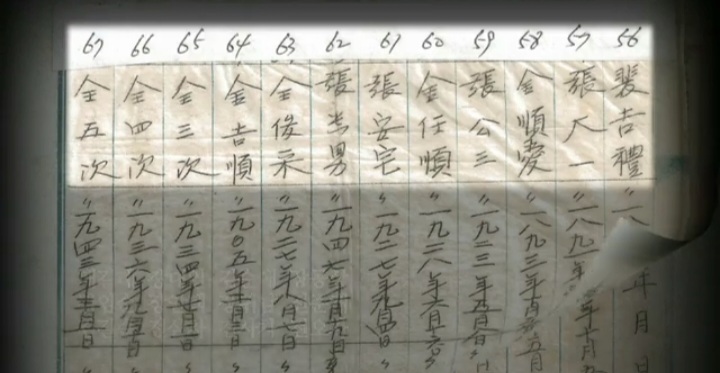 56 裴吉禮 〃一八 年 月 日
57 張 一 〃一八九一年 年十月九
58 金順愛 〃一八九三年十月 五日
59 張公三 〃一九二三年五月 日
60 金任順 〃一九二八年六月十六
61 張安宅 〃一九二七年九月四日
62 張 男 〃一九四七年十月九日
63 金俊采 〃一九二七年八月七日
64 金吉順 〃一九〇五年 月三日
65 金三次 〃一九三四年七月 日
66 金四次 〃一九三六年九月 日
67 金五次 〃一九四三年三月 日